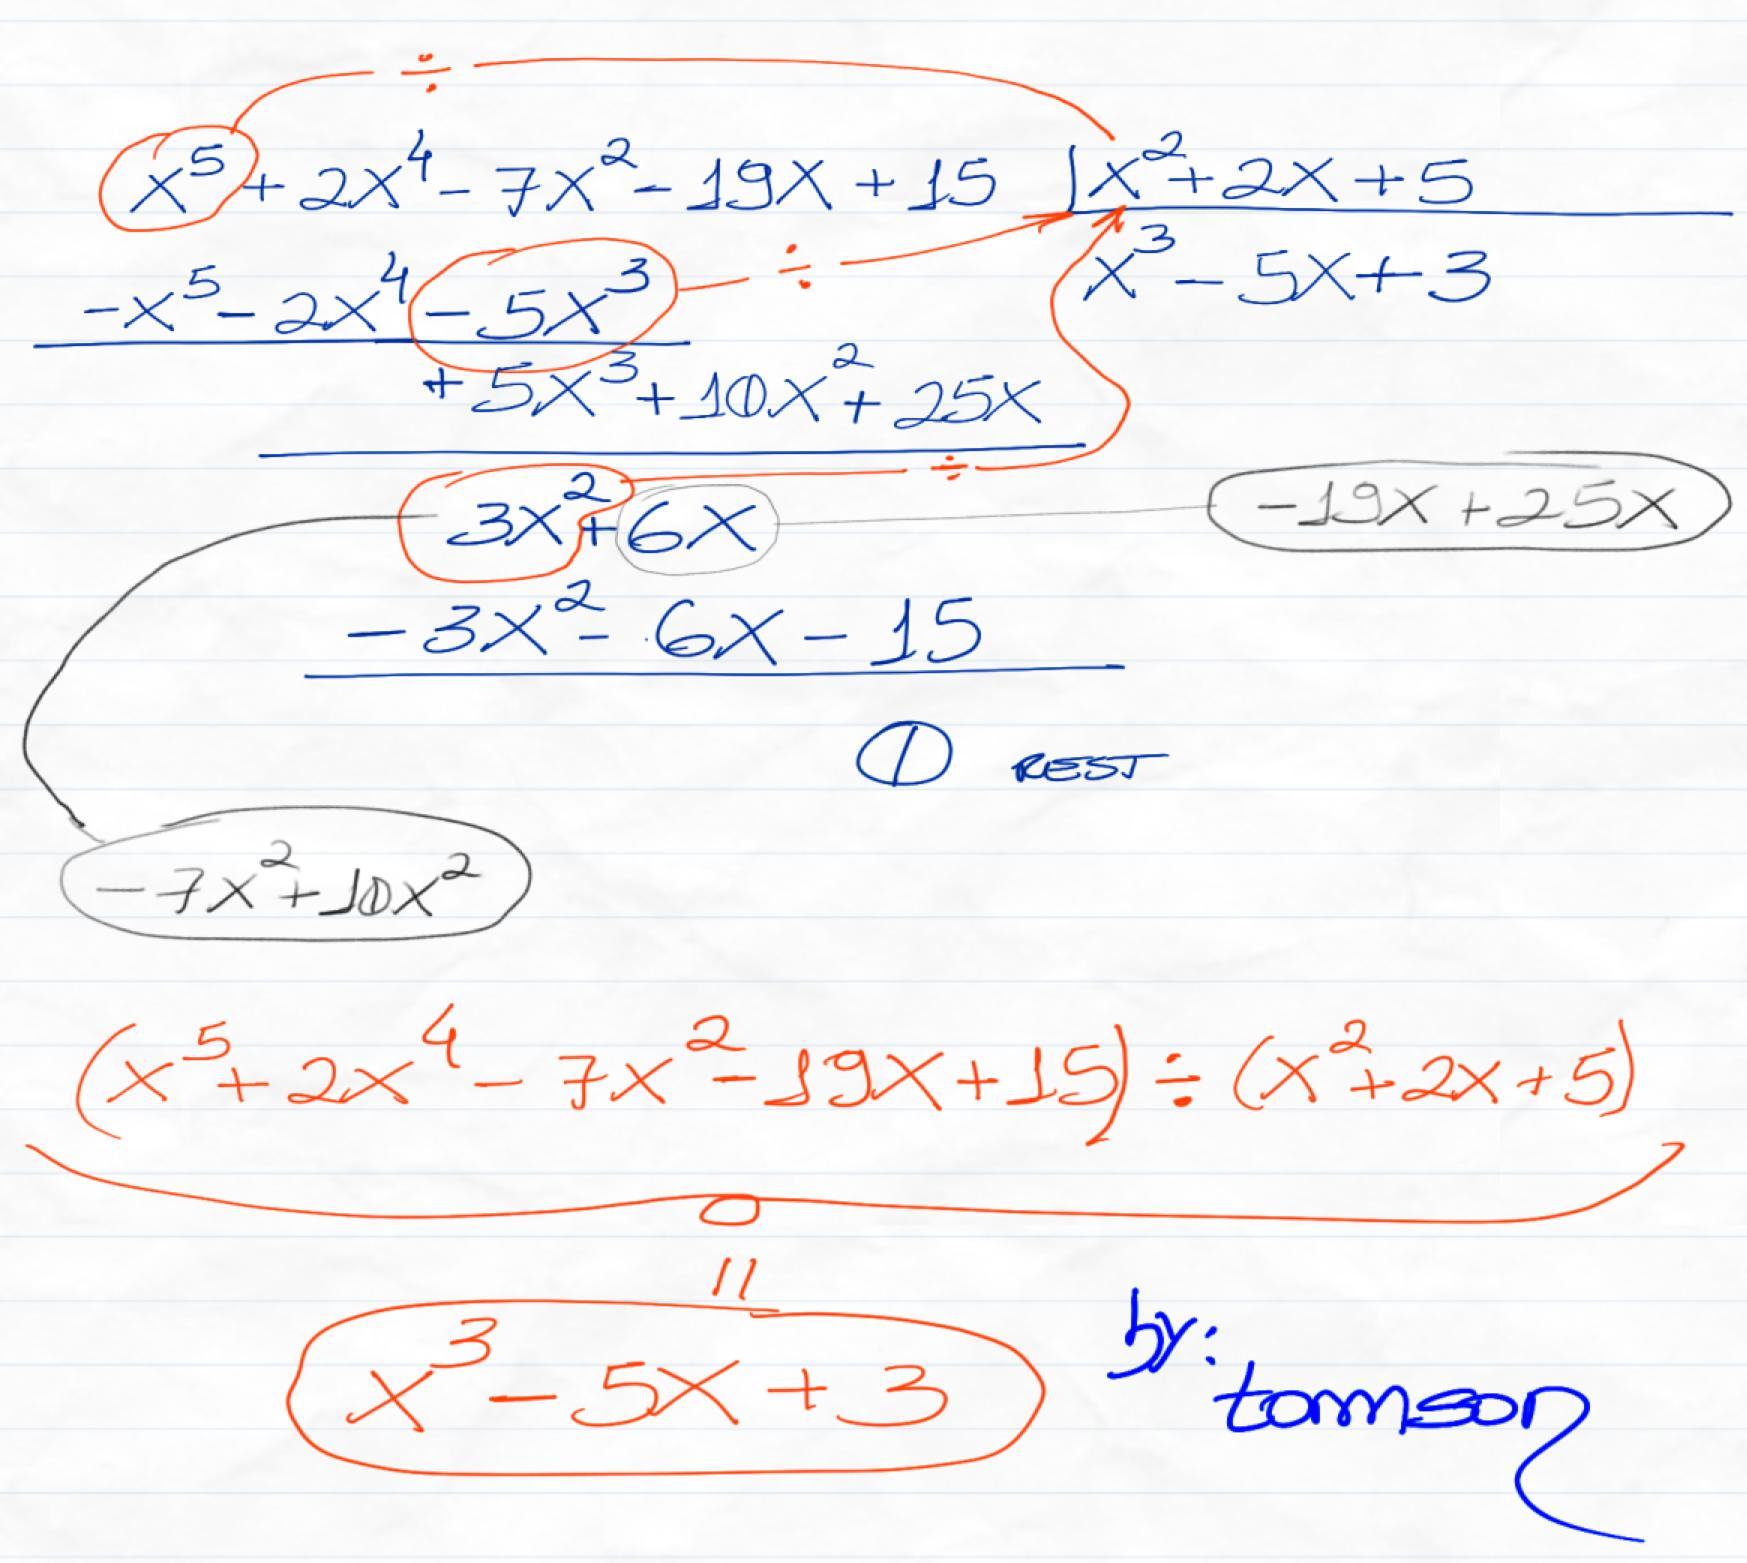 ÷
x⁵ + 2x⁴ - 7x² - 19x + 15 | x² + 2x + 5
-x⁵ - 2x⁴ - 5x³ ÷ x³ - 5x + 3
+ 5x³ + 10x² + 25x
÷
3x² + 6x -19x + 25x
- 3x² - 6x - 15
0 REST
-7x² + 10x²
(x⁵ + 2x⁴ - 7x² - 19x + 15) ÷ (x² + 2x + 5)
=
x³ - 5x + 3
by:
tomson